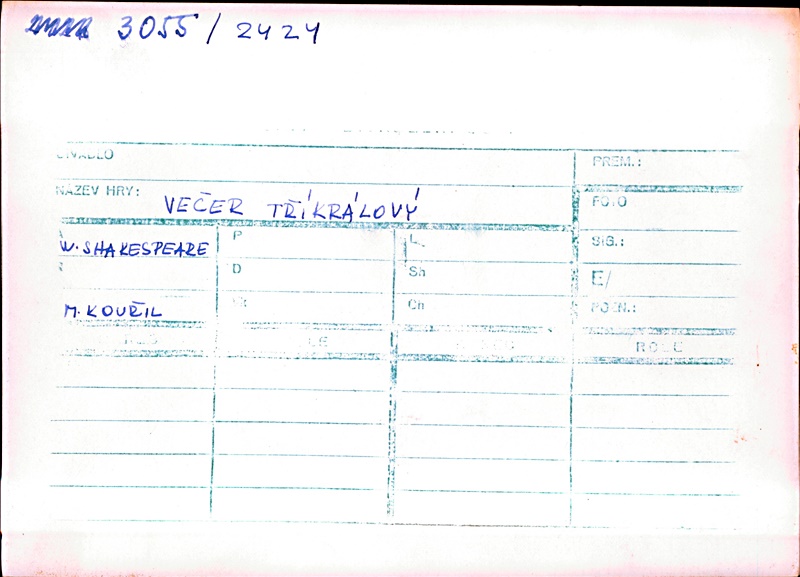 3055 / 2424
DIVADLO
PREM.:
NÁZEV HRY: VEČER TŘÍKRÁLOVÝ
FOTO
W. SHAKESPEARE
P
L
SIG.:
D
Sh
E/
M. KOUŘIL
Ch
POZN.:
ROLE